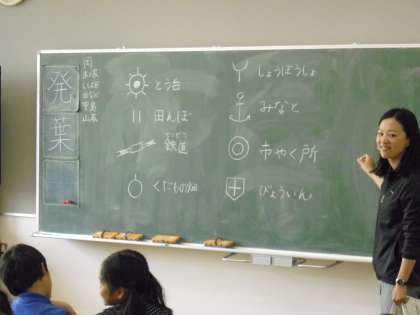 発
葉
とう台
田んぼ
鉄道
くだもの畑
しょうぼうしょ
みなと
市やく所
びょういん